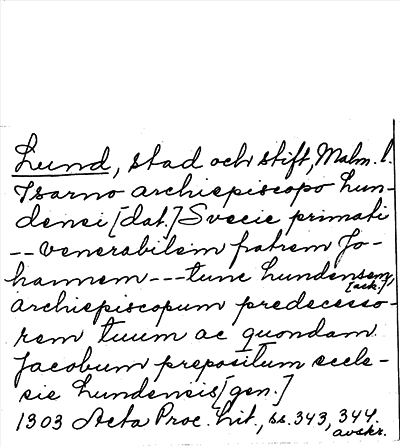 Lund, stad och stift, Malm. l.
Isarno archiepiscopo Lun-
densi [dat.] Svecie primati
-- venerabilem fratrem Jo-
hannem --- tunc Lundensem [ack.],
archiepiscopum predecesso-
rem tuum ac quondam
Jacobum prepositum eccle-
sie Lundensis [gen.]
1303 Acta Proc. Lit., ss. 343, 344.
avskr.